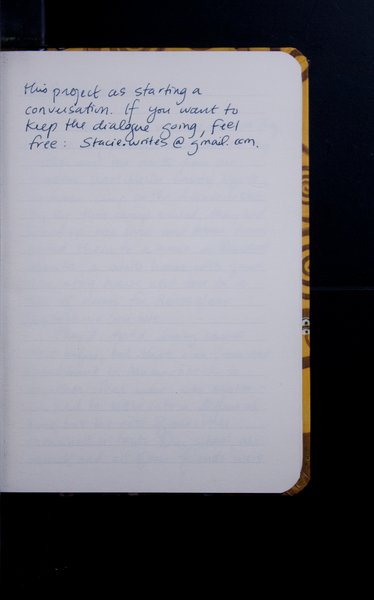 this project as starting a
conversation. If you want to
keep the dialogue going, feel
free: Stacie.writes@gmail.com.